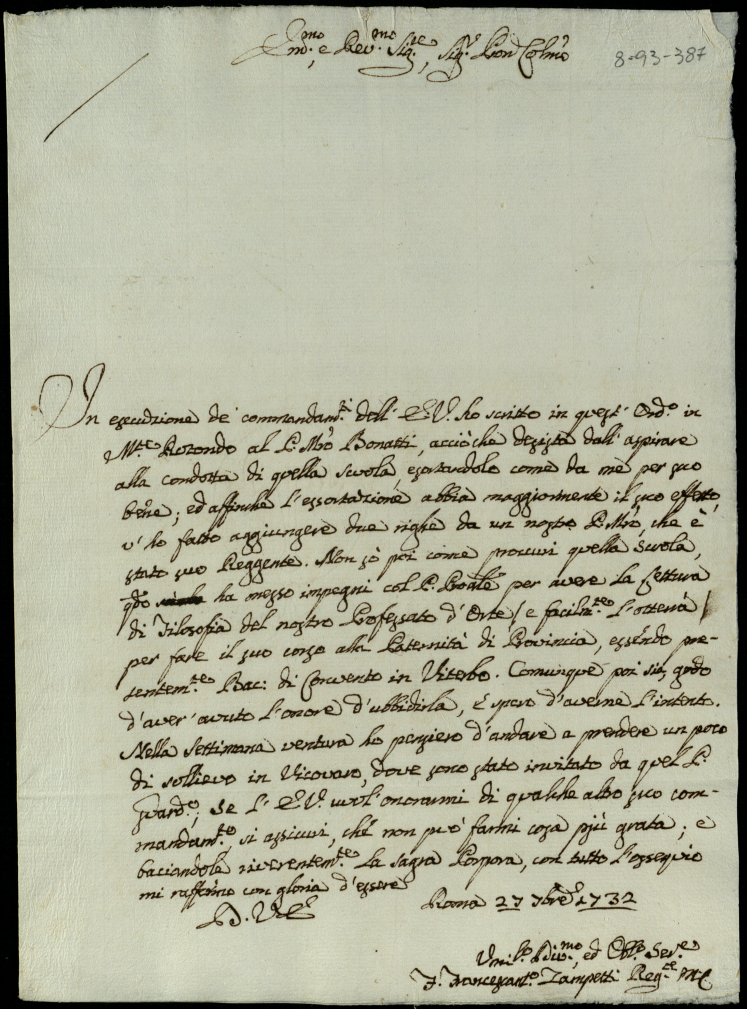 Em.mo e Rev.mo Sig.re, Sig.r Pron Colmo
8-93-387
In esecuzione de' commandam.ti dell' E.V. ho scritto in quest' Ord.o in
M.te Rotondo al P. Mro Bonatti, acciòche desista dall' aspirare
alla condotta di quella scuola, esortandolo come da me per suo
bene; ed affinche l'essortazione abbia maggiormente il suo effetto,
v'ho fatto aggiungere due righe da un nostro P. Mro, che è
stato suo Reggente. Non sò poi come procuri quella Scuola,
qdo ha messo impegni col P. Gñale per avere la Lettura
di Filosofia del nostro Professato d'Orte / e facilm.te l'otterrà /
per fare il suo corso alla Paternità di Provincia, essendo pre-
sentem.te Bac: di Convento in Viterbo. Comunque poi sia, godo
d'aver' avuto l'onore d'ubbidirla, e spero d'averne l'intento.
Nella Settimana ventura ho pensiero d'andare a prendere un poco
di sollievo in Vicovaro, dove sono stato invitato da quel P.
Guard.o; se l' E.V. vuol' onorarmi di qualche altro suo com-
mandam.to, si assicuri, che non può farmi cosa più grata; e
baciandole riverentem.te la sagra Porpora, con tutto l'ossequio
mi raffermo con gloria d'essere
D. V. E. Roma 27 7bre 1732
Umil.o Div.mo, ed Obb.o Ser.e
F. Francescant.o Zampetti Reg.te M.C.